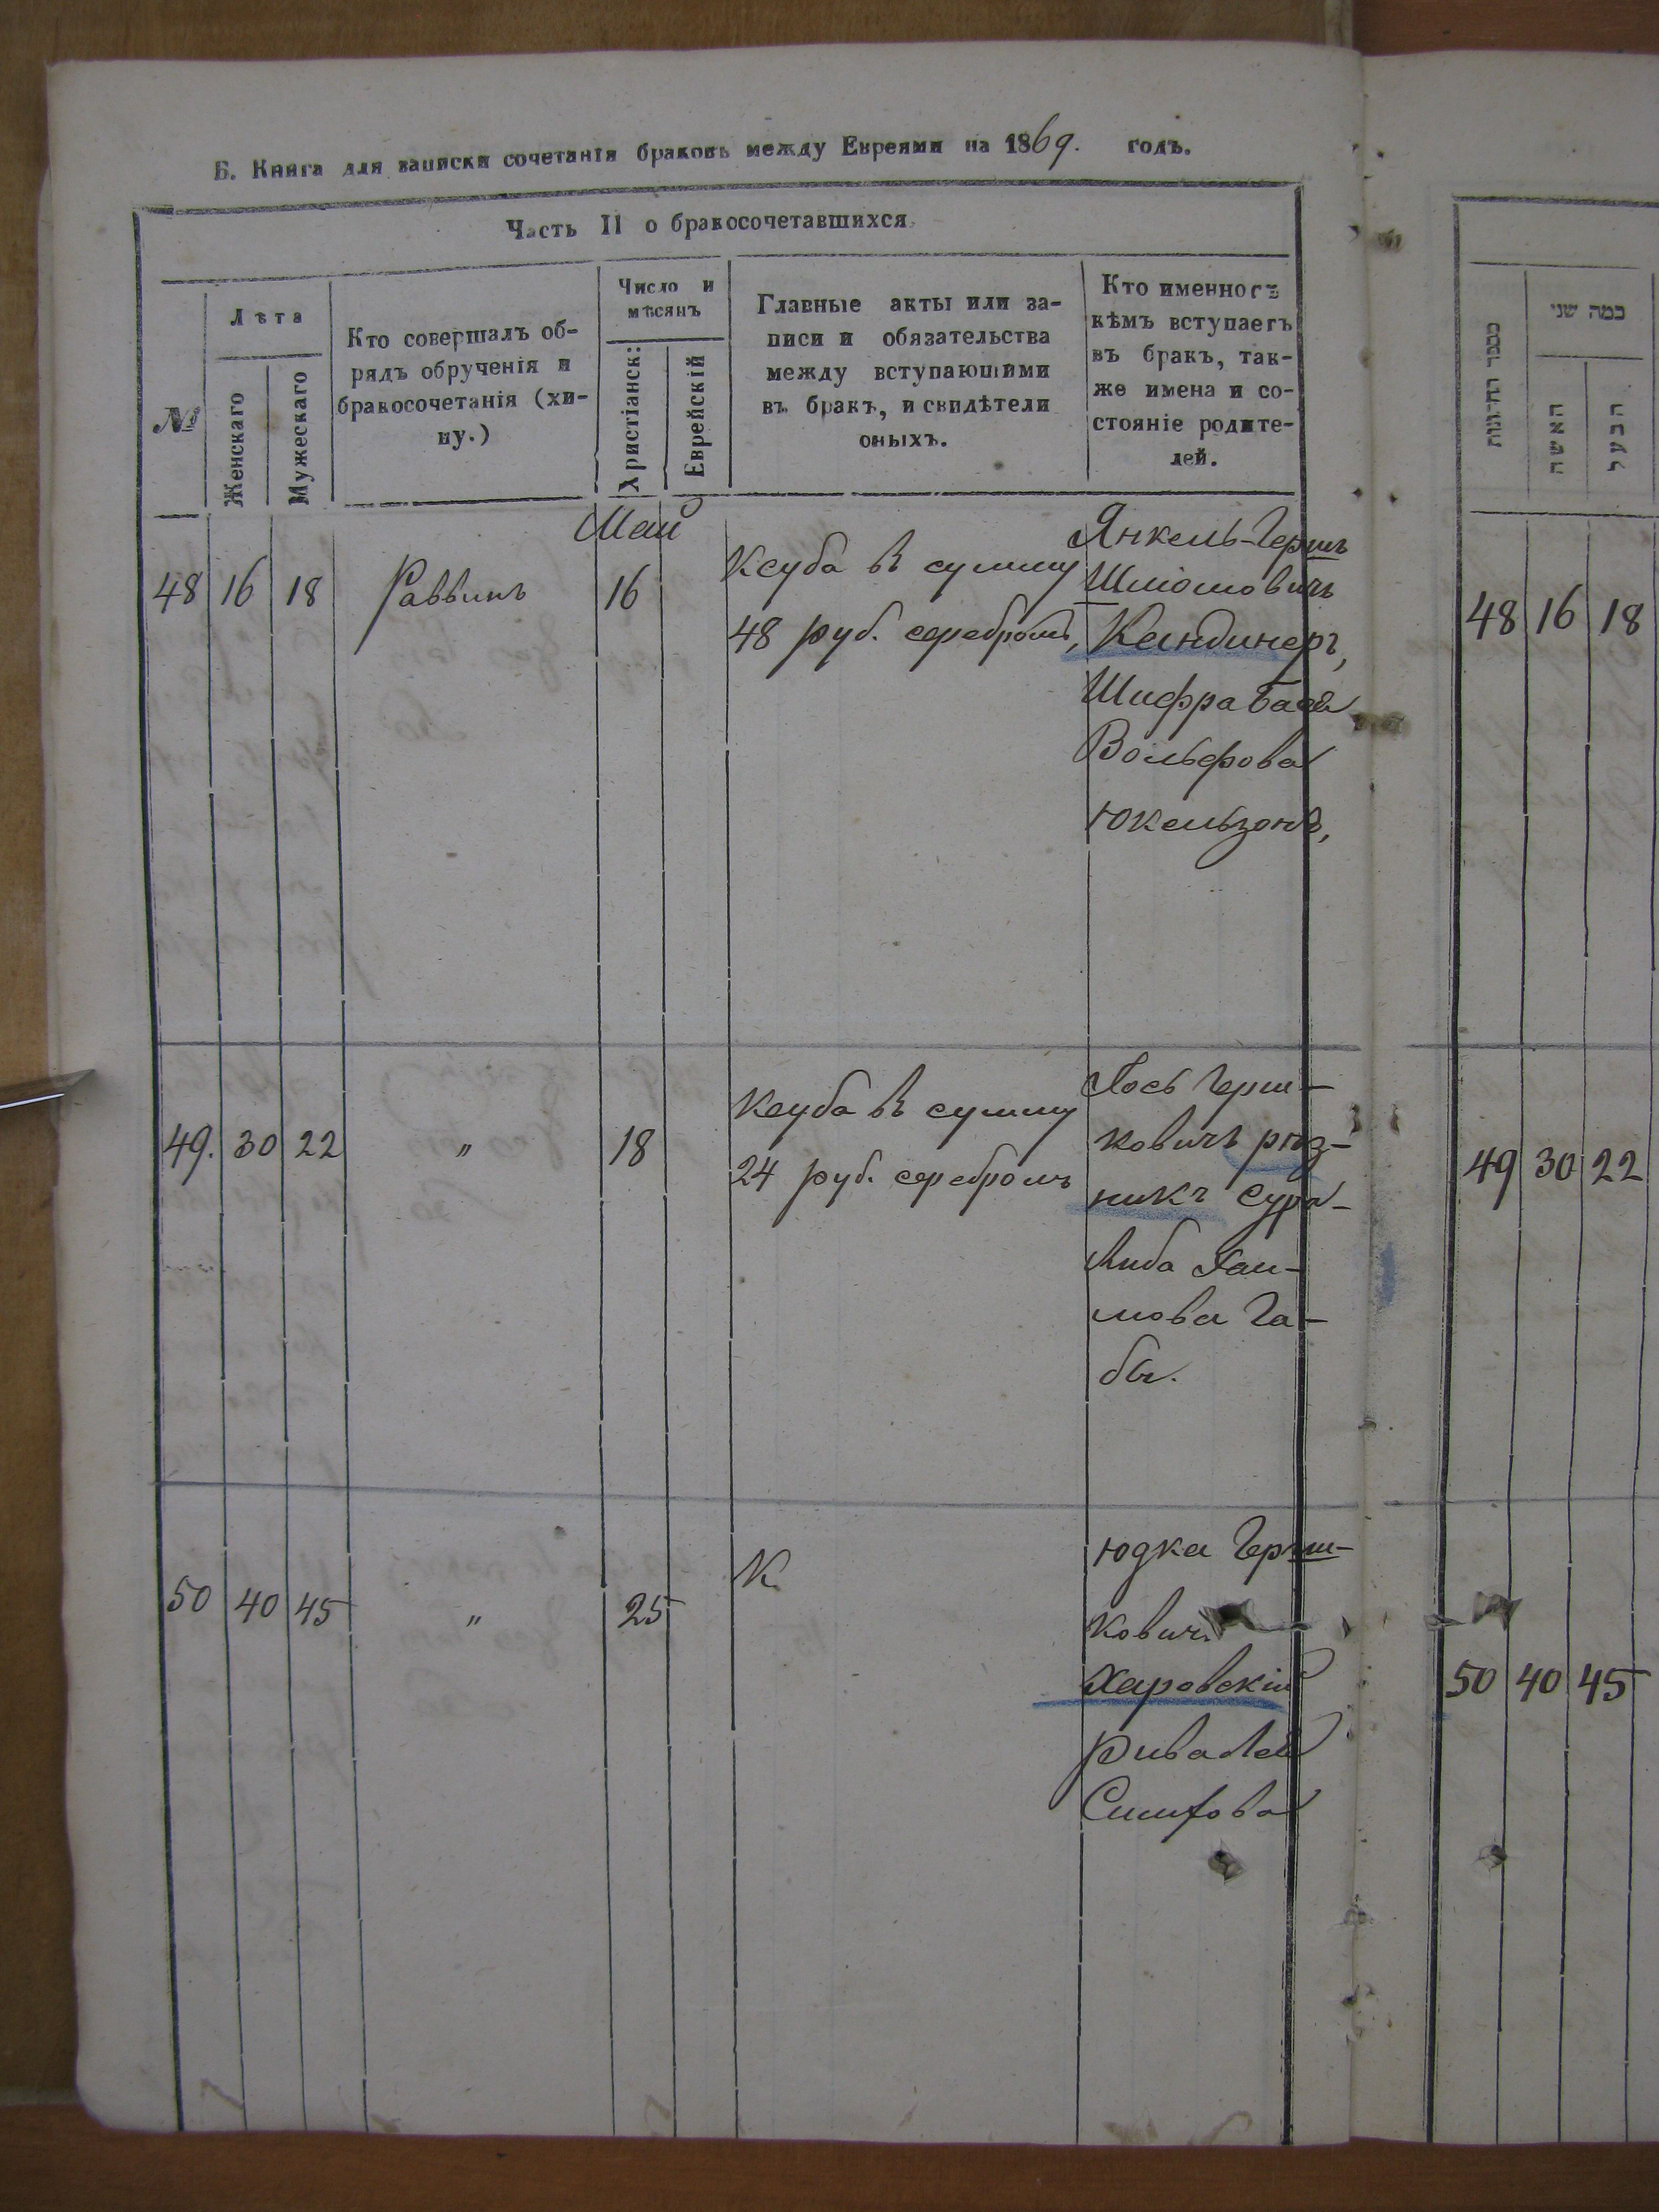 Б. Книга для записки сочетанія браковъ между Евреями на 1869. годъ.
Часть II о бракосочетавшихся.
№
Лѣта
Женскаго
Мужескаго
Кто совершалъ об-
рядъ обрученія и
бракосочетанія (хи-
пу.)
Число и
мѣсяцъ
Христіанск:
Еврейскій
Главные акты или за-
писи и обязательства
между вступающими
въ бракъ, и свидѣтели
оныхъ.
Кто именно съ
кѣмъ вступаетъ
въ бракъ, так-
же имена и со-
стояніе родите-
лей.
Май
48 16 18 Раввинъ 16
Ксуба въ сумму
48 руб. серебромъ,
Янкель-Гершъ
Шліомовичъ
Кандинеръ,
Шифра Бася
Вольфова
Юкельзонъ,
49. 30 22 " 18
Ксуба въ сумму
24 руб. серебромъ
Іось Герш-
ковичъ рѣз-
никъ Сура-
Либа Хаи-
мова Га-
бы.
50 40 45 " 25
К.
Юдка Герш-
кович
Харовскій
Рива Лея
מספר החתונות
כמה שני
האשה
הבעל
48 16 18
49 30 22
50 40 45